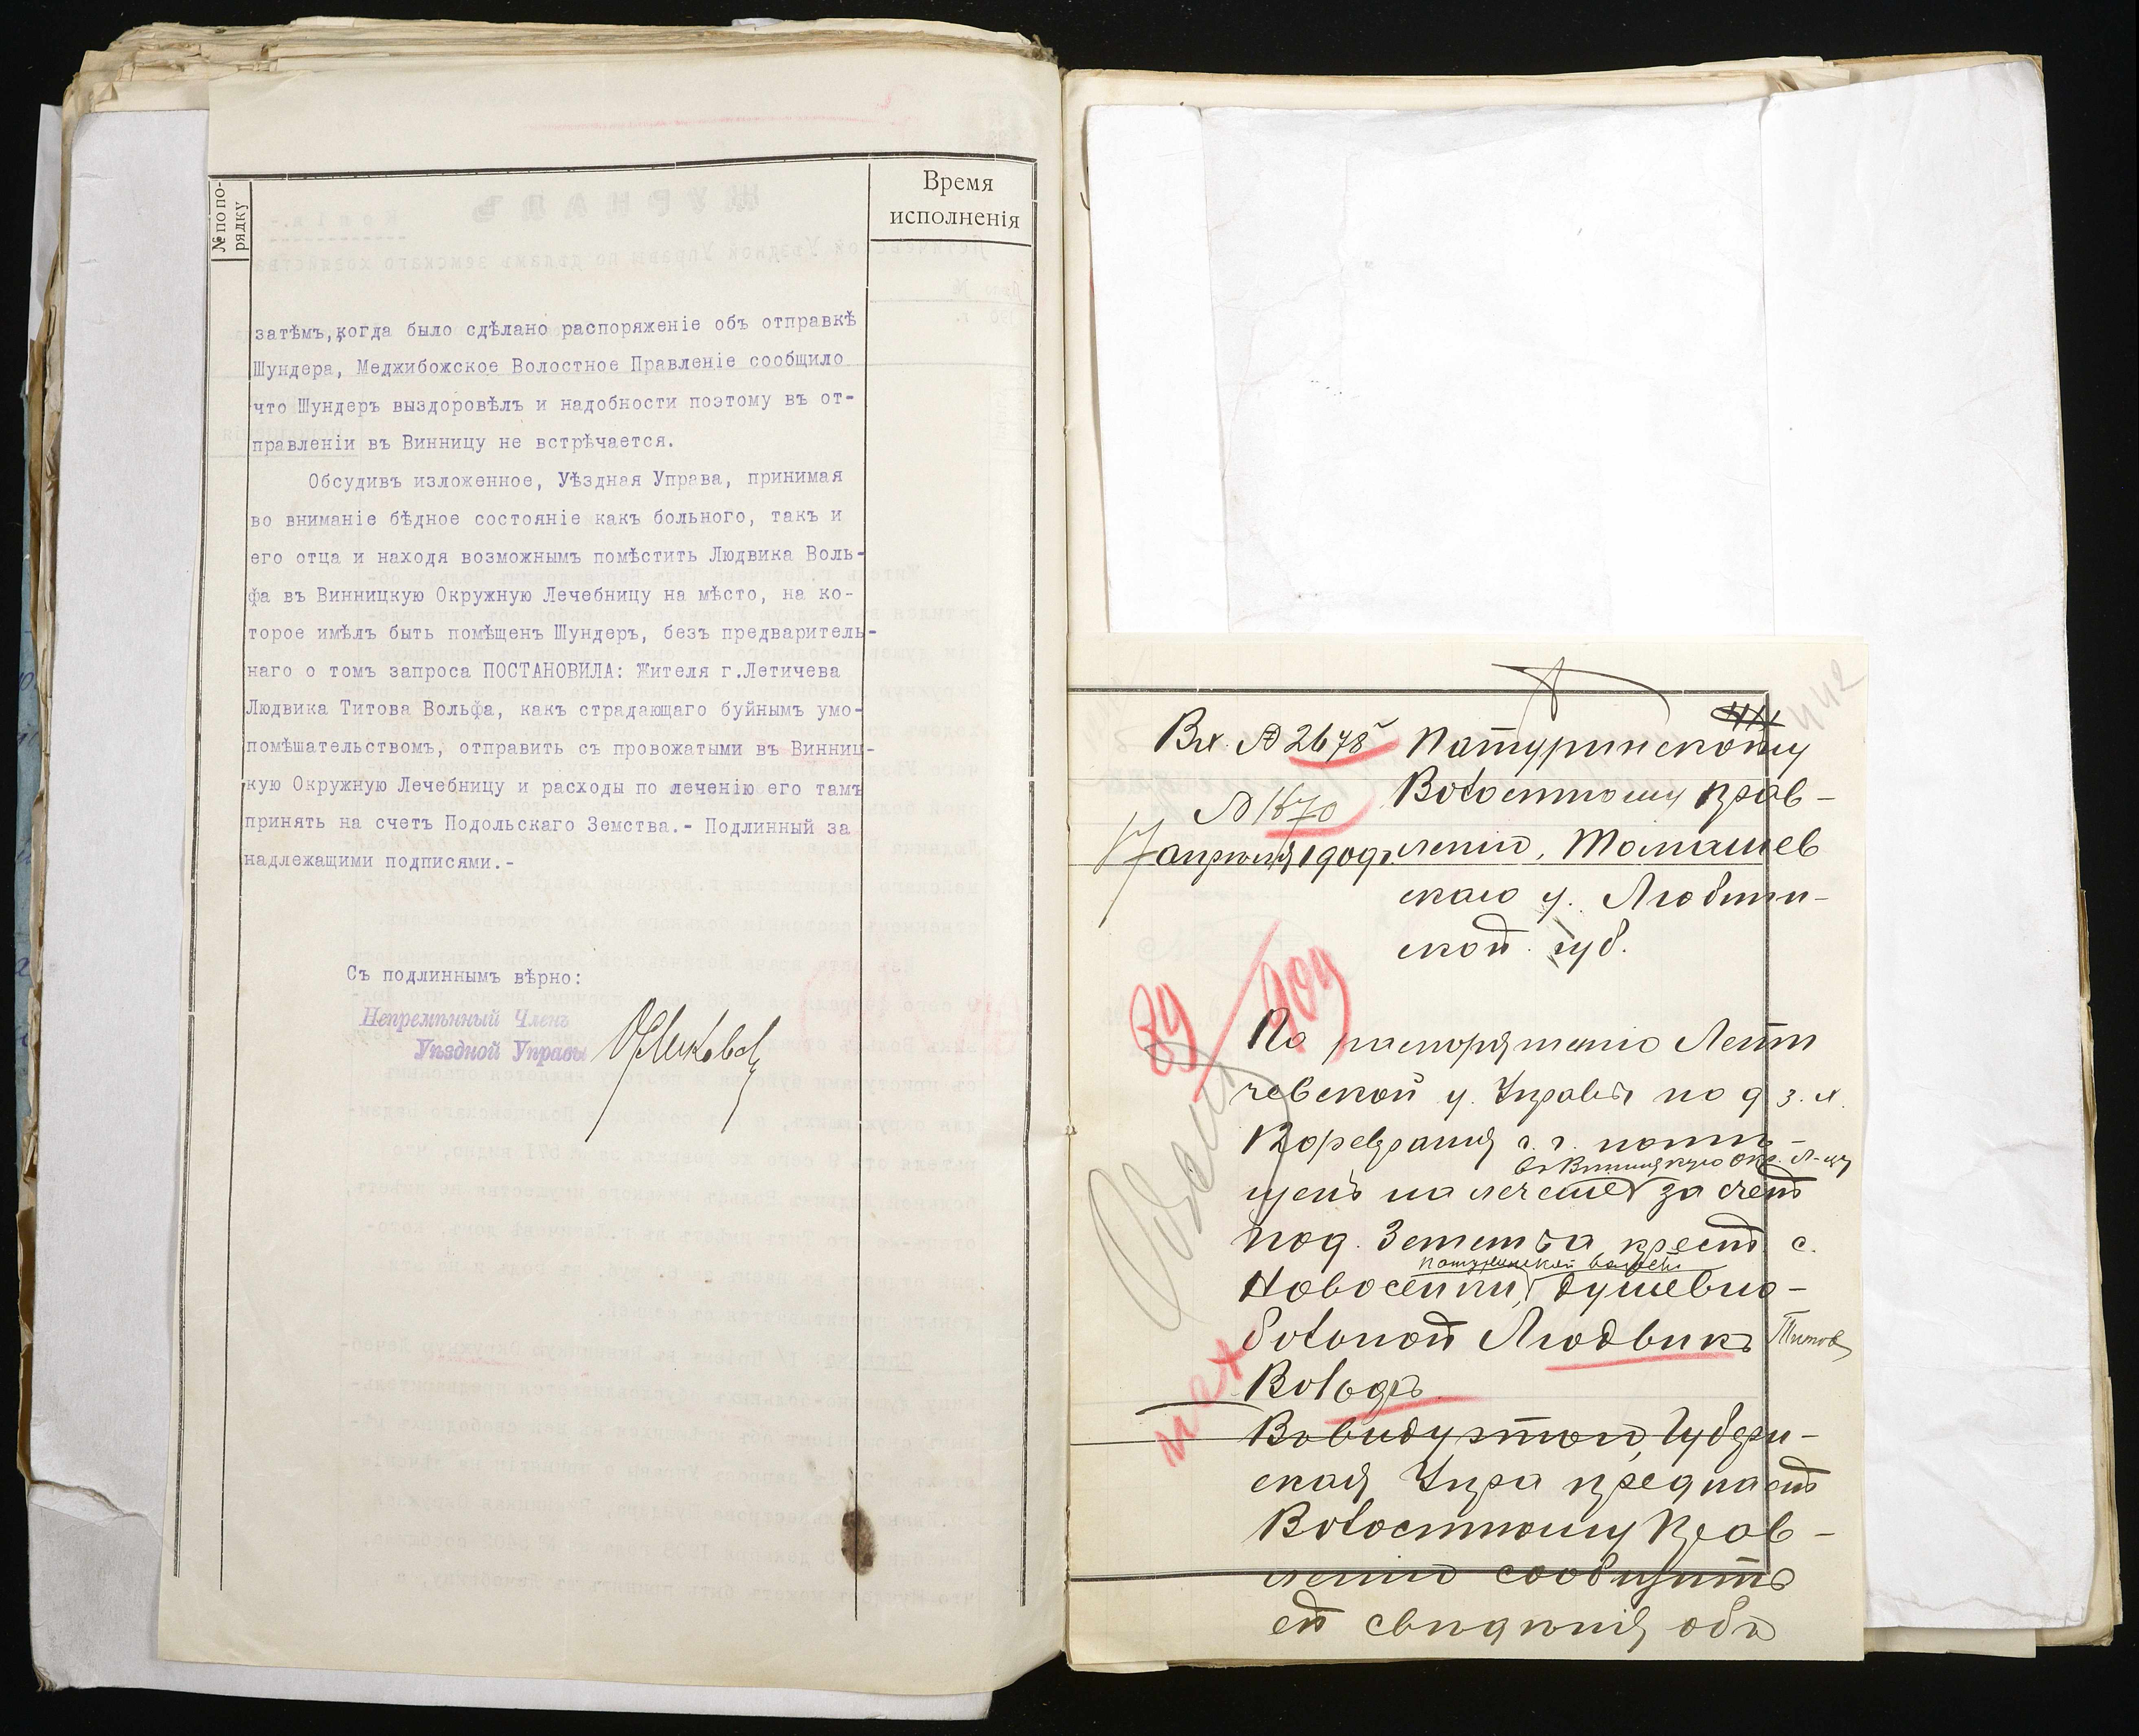 № по по-
рядку
Время
исполненія
затѣмъ, когда было сдѣлано распоряженіе объ отправкѣ
Шундера, Меджибожское Волостное Правленіе сообщило
что Шундеръ выздоровѣлъ и надобности поэтому въ от-
правленіи въ Винницу не встрѣчается.
Обсудивъ изложенное, Уѣздная Управа, принимая
во вниманіе бѣдное состояніе какъ больного, такъ и
его отца и находя возможнымъ помѣстить Людвика Воль-
фа въ Винницкую Окружную Лечебницу на мѣсто, на ко-
торое имѣлъ быть помѣщенъ Шундеръ, безъ предваритель-
наго о томъ запроса ПОСТАНОВИЛА: Жителя г.Летичева
Людвика Титова Вольфа, какъ страдающаго буйнымъ умо-
помѣшательствомъ, отправить съ провожатыми въ Винниц-
кую Окружную Лечебницу и расходы по леченію его тамъ
принять на счетъ Подольскаго Земства.- Подлинный за
надлежащими подписями.-
Съ подлиннымъ вѣрно:
Непремѣнный Членъ
Уѣздной Управы
442
Вх. № 2678 Патуринскому
№ 1670 Волостному прав-
17 апрѣля 1909 г. ленію, Томашев
скаго у. Люблин-
ской губ.
89/909
По распоряженію Лети
чевской у. Управы по д з. х.
февраля с. г. помѣ-
въ Винницкую Окр. Л-цу
щенъ на леченіе за счетъ
под. Земства крест. с.
патуринской волости
Новосёлки, душевно-
больной Людвикъ Титовъ
Вольфъ
Ввиду этого, Губерн-
ская Упра
Волостному Прав-
ленію сообщить
ей свѣдѣнія объ